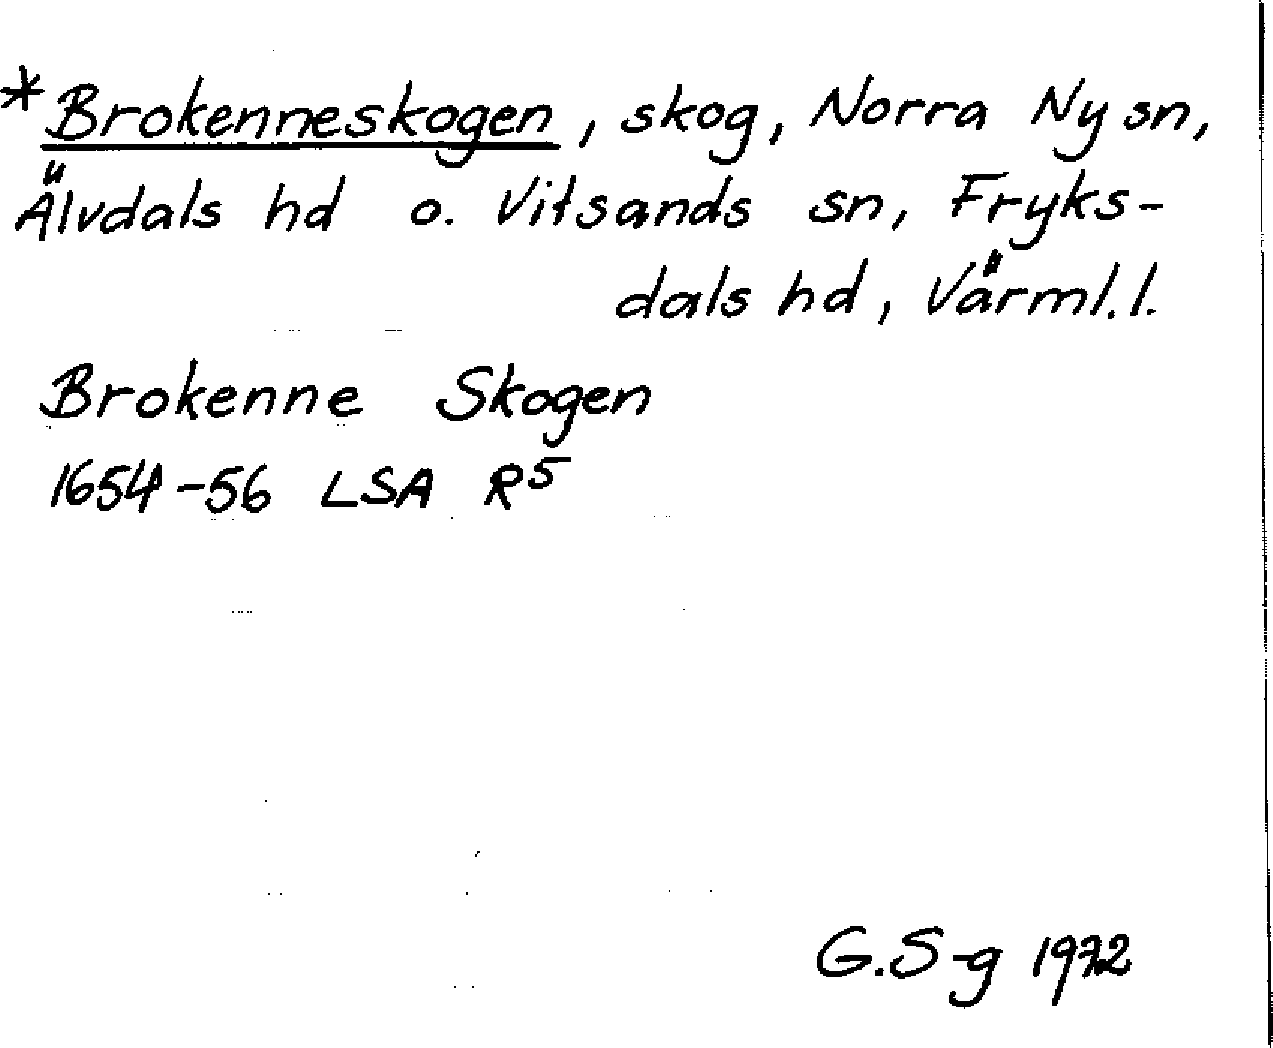 *Brokenneskogen, skog, Norra Ny sn,
Älvdals hd o. Vitsands sn, Fryks-
dals hd, Värml.l.
Brokenne Skogen
1654-56 LSA R5
G.S-g 1972